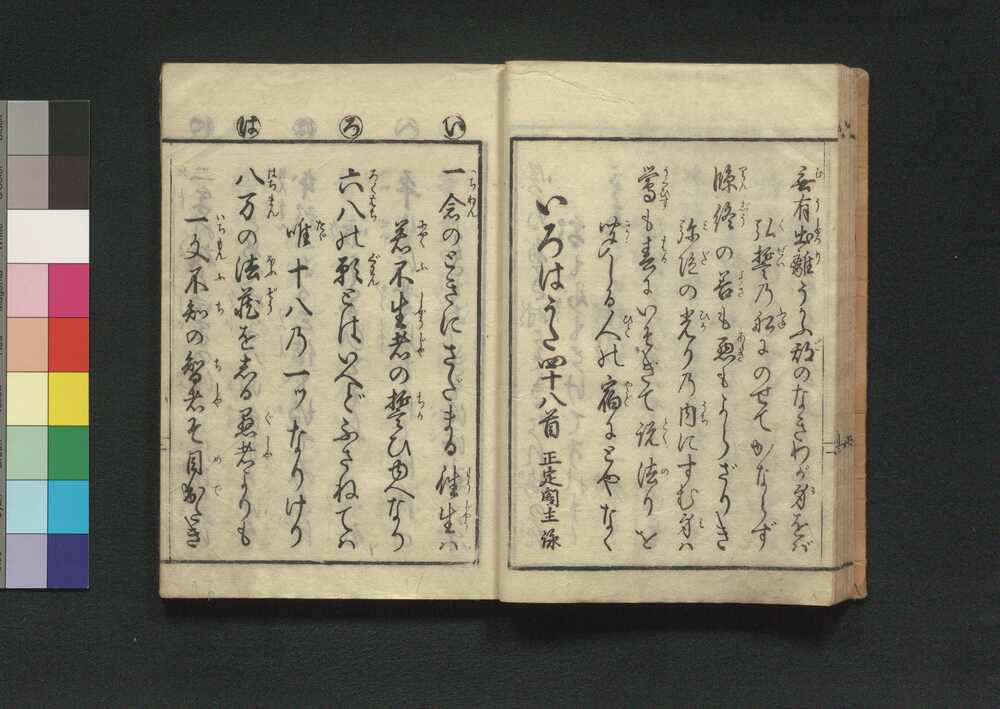 無有出離うみ那のなきわが身をバ
弘誓乃船にのせてかならず
臨終の善も悪もえらざりき
弥陀の光り乃内にすむ身ハ
鶯も春にいそぎて説法りを
聞しる人の宿にとやなく
いろはうた四十八首 正定閣主詠
い
一念のときにさだまる往生ハ
若不生者の誓ひゆへなり
ろ
六八の願とはいへどふさねてハ
唯十八乃一ッなりけり
は
八万の法蔵をしる愚者よりも
一文不知の智者ぞ目出たき